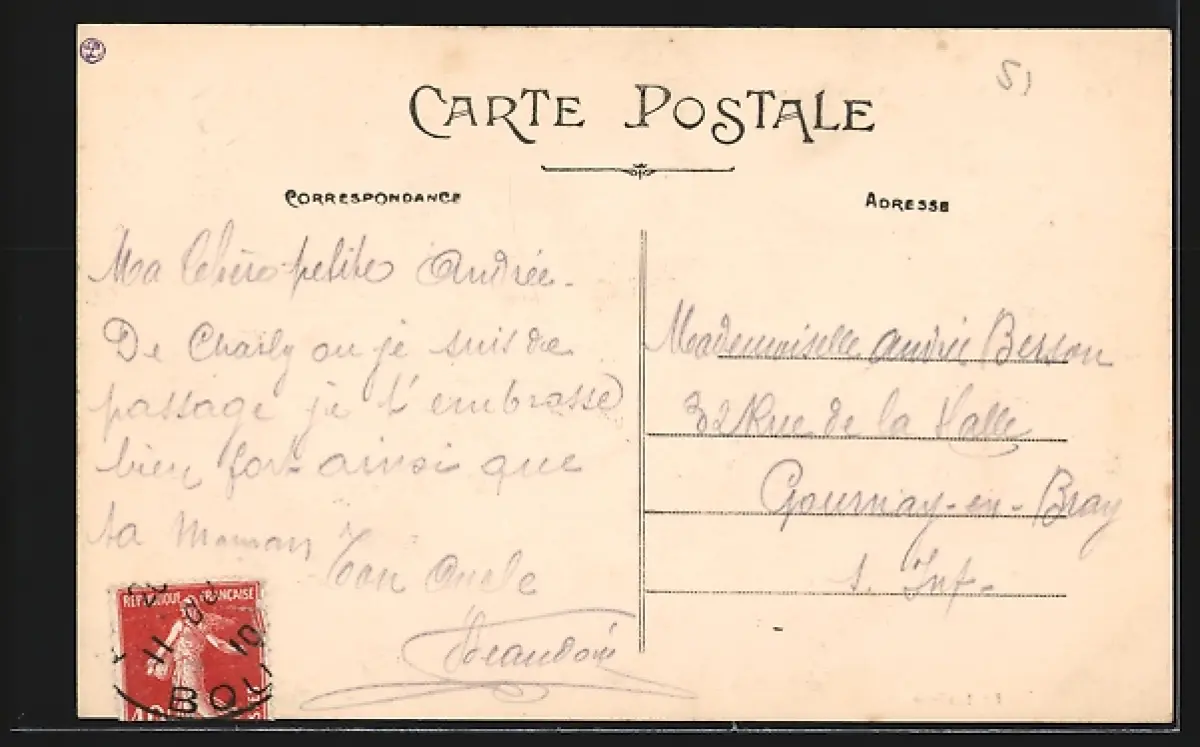 CARTE POSTALE
CORRESPONDANCE
ADRESSE
51
Ma Chère petite Andrée.
De Charly ou je suis de
passage je t'embrasse
bien fort ainsi que
ta Maman
Ton Oncle
Mademoiselle Andrée Berson
32 Rue de la Halle
Gournay-en-Bray
S. Inf.
REPUBLIQUE FRANÇAISE
11
10
BOU